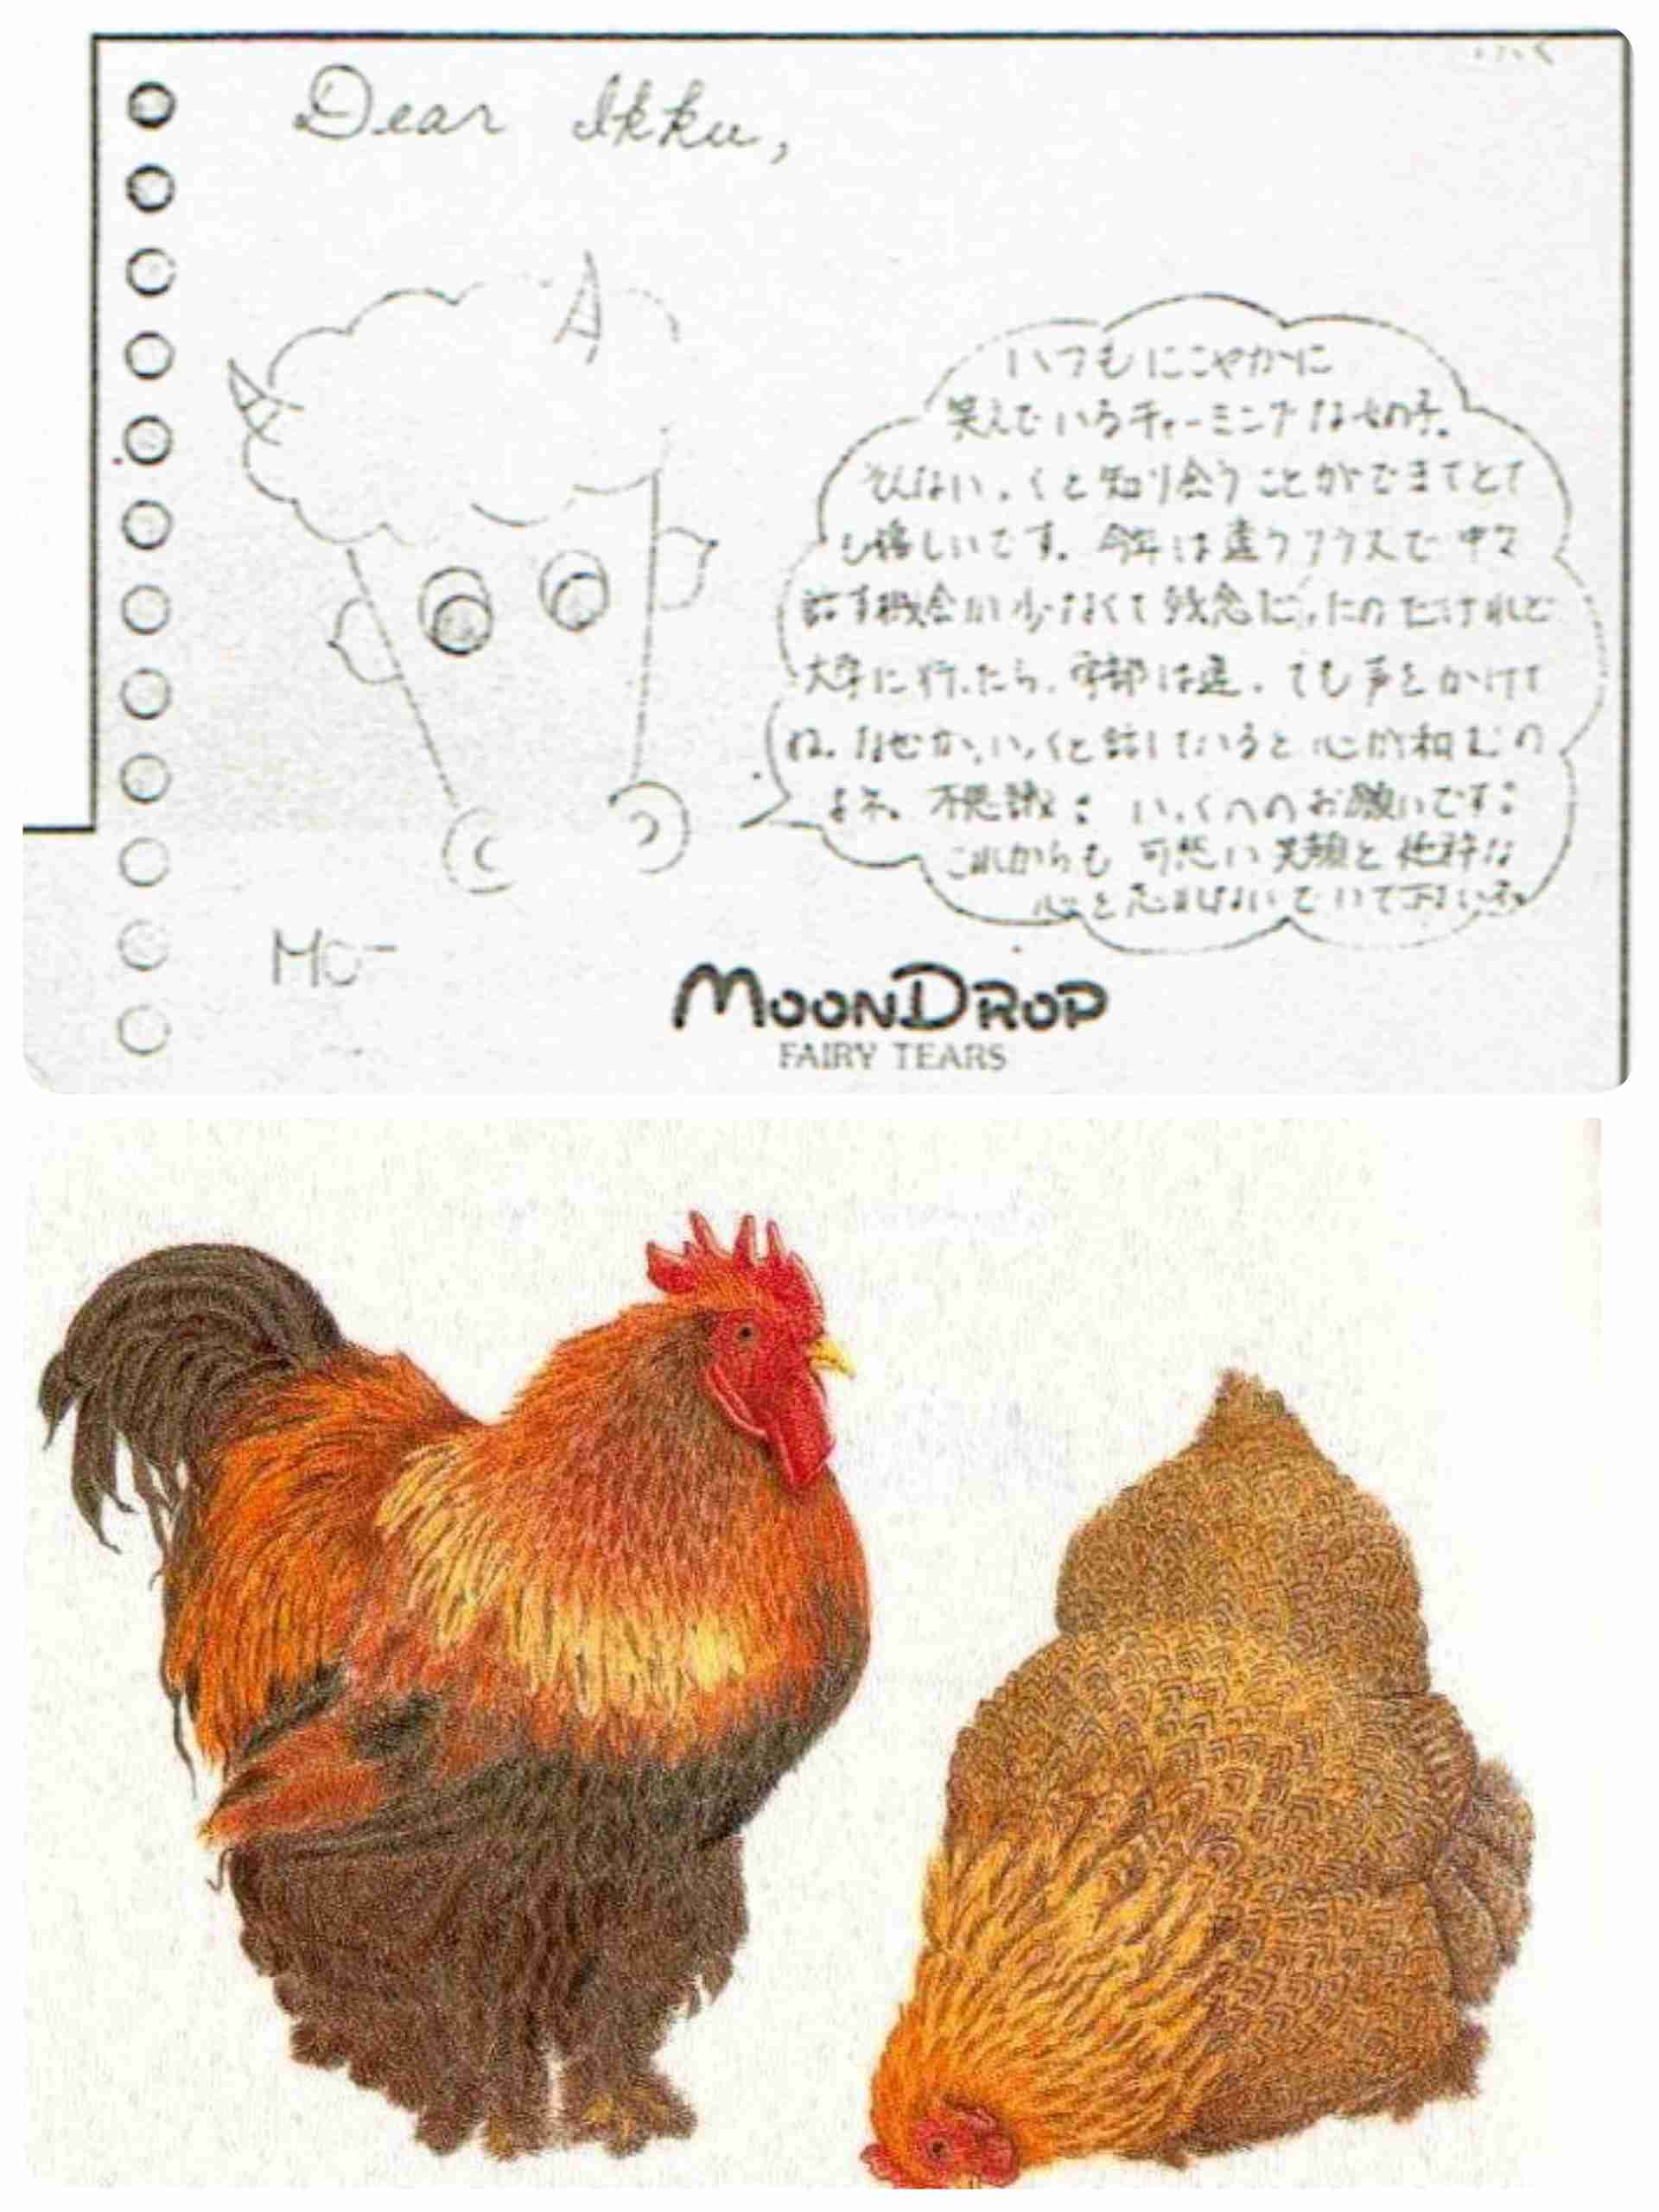 Dear Ikku,
いつもにこやかに
笑んでいるチャーミングな女の子。
そんないっくと知り合うことができてとて
も嬉しいです。今年は違うクラスで中々
話す機会が少なくて残念だったのだけれど
大学に行ったら、学部は違っても声をかけて
ね。なぜか、いっくと話していると心が和むの
よネ。不思議!いっくへのお願いです!
これからも可愛い笑顔と
心を忘れないでいて下さいネ
Mo-
MOONDROP
FAIRY TEARS